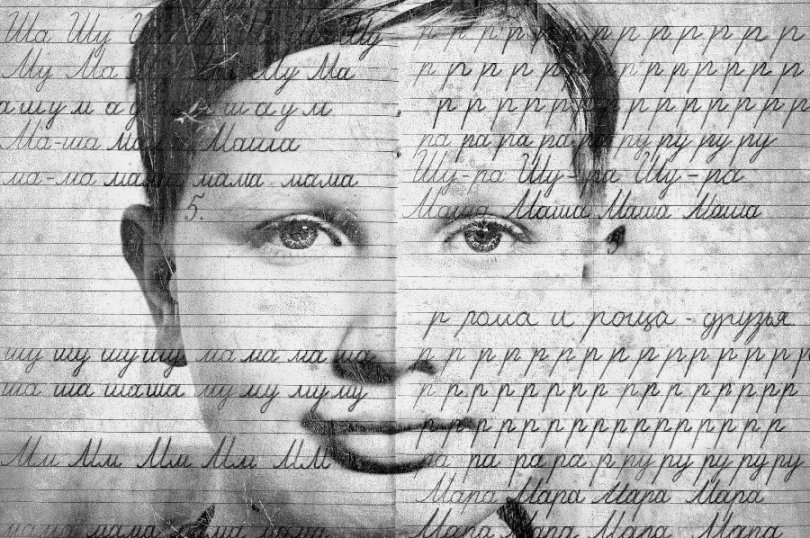 Ша Шу Шу
Му Ма Му Ма
а ш у м а у ш а у м
Ма-ша мама Маша
ма-ма мама мама мама
5.
шу шу шу шу ма ма ма
ша ша шаша му му му му
Мм Мм Мм Мм ММ
мама мама мама
р р р р р р р р р р р р р
р р р р р р р р р р р р р
р р р р р р р р р р р р р
ра ра ра ра ру ру ру ру
Шу-ра Шу-ра Шу-ра
Маша Маша Маша Маша
р рома и роща - друзья
р р р р р р р р р р р р р р
р рр рр рр рр рр рр рр ррр
р р р р р р р р р р р р р р
ра ра ра ра ру ру ру ру ру
Мара Мара Мара Мара
Мара Мара Мара Мара